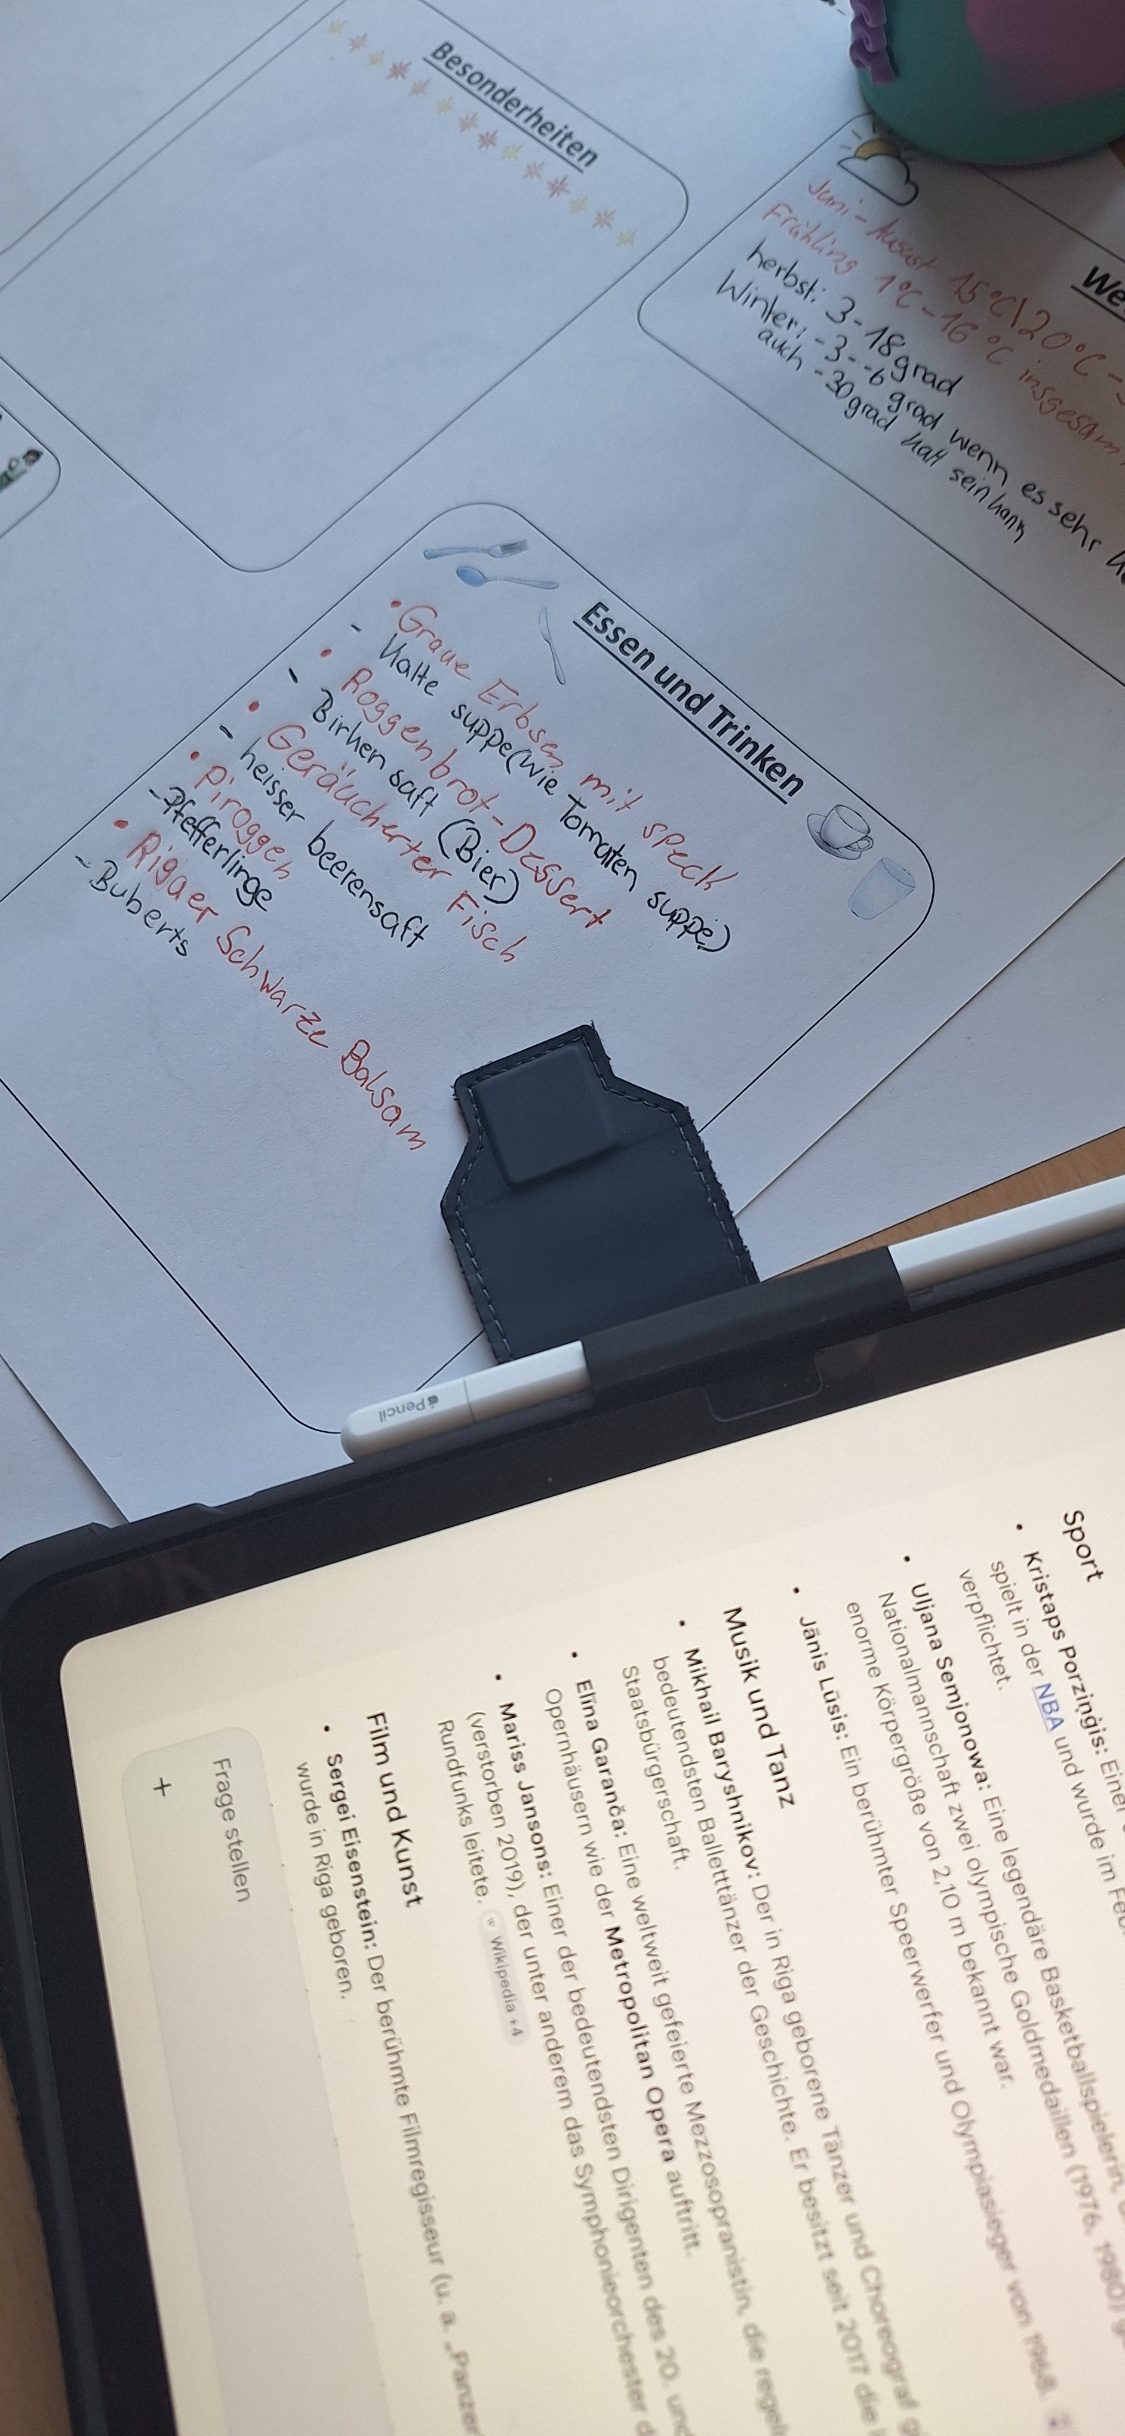 Besonderheiten
We
Juni - August 15°C\20°C -
Frühling 1°C - 16°C insgesam
herbst: 3-18 grad
Winter: -3--6 grad wenn es sehr
auch -30 grad kalt sein kann
Essen und Trinken
• Graue Erbsen mit speck
- Kalte suppe (wie Tomaten suppe)
• Roggenbrot-Dessert
- Birken saft (Bier)
• Geräucherter Fisch
- heisser beerensaft
• piroggen
- Pfefferlinge
• Rigaer Schwarze Balsam
- Buberts
Pencil
Sport
• Kristaps Porziņģis: Einer
spielt in der NBA und wurde im Feb
verpflichtet.
• Uljana Semjonowa: Eine legendäre Basketballspielerin,
Nationalmannschaft zwei olympische Goldmedaillen (1976, 1980) g
enorme Körpergröße von 2,10 m bekannt war.
• Jānis Lūsis: Ein berühmter Speerwerfer und Olympiasieger von 1968.
Musik und Tanz
• Mikhail Baryshnikov: Der in Riga geborene Tänzer und Choreograf g
bedeutendsten Balletttänzer der Geschichte. Er besitzt seit 2017 die
Staatsbürgerschaft.
• Elīna Garanča: Eine weltweit gefeierte Mezzosopranistin, die regel
Opernhäusern wie der Metropolitan Opera auftritt.
• Mariss Jansons: Einer der bedeutendsten Dirigenten des 20. und
(verstorben 2019), der unter anderem das Symphonieorchester d
Rundfunks leitete. Wikipedia +4
Film und Kunst
• Sergei Eisenstein: Der berühmte Filmregisseur (u. a. „Panzer
wurde in Riga geboren.
Frage stellen
+